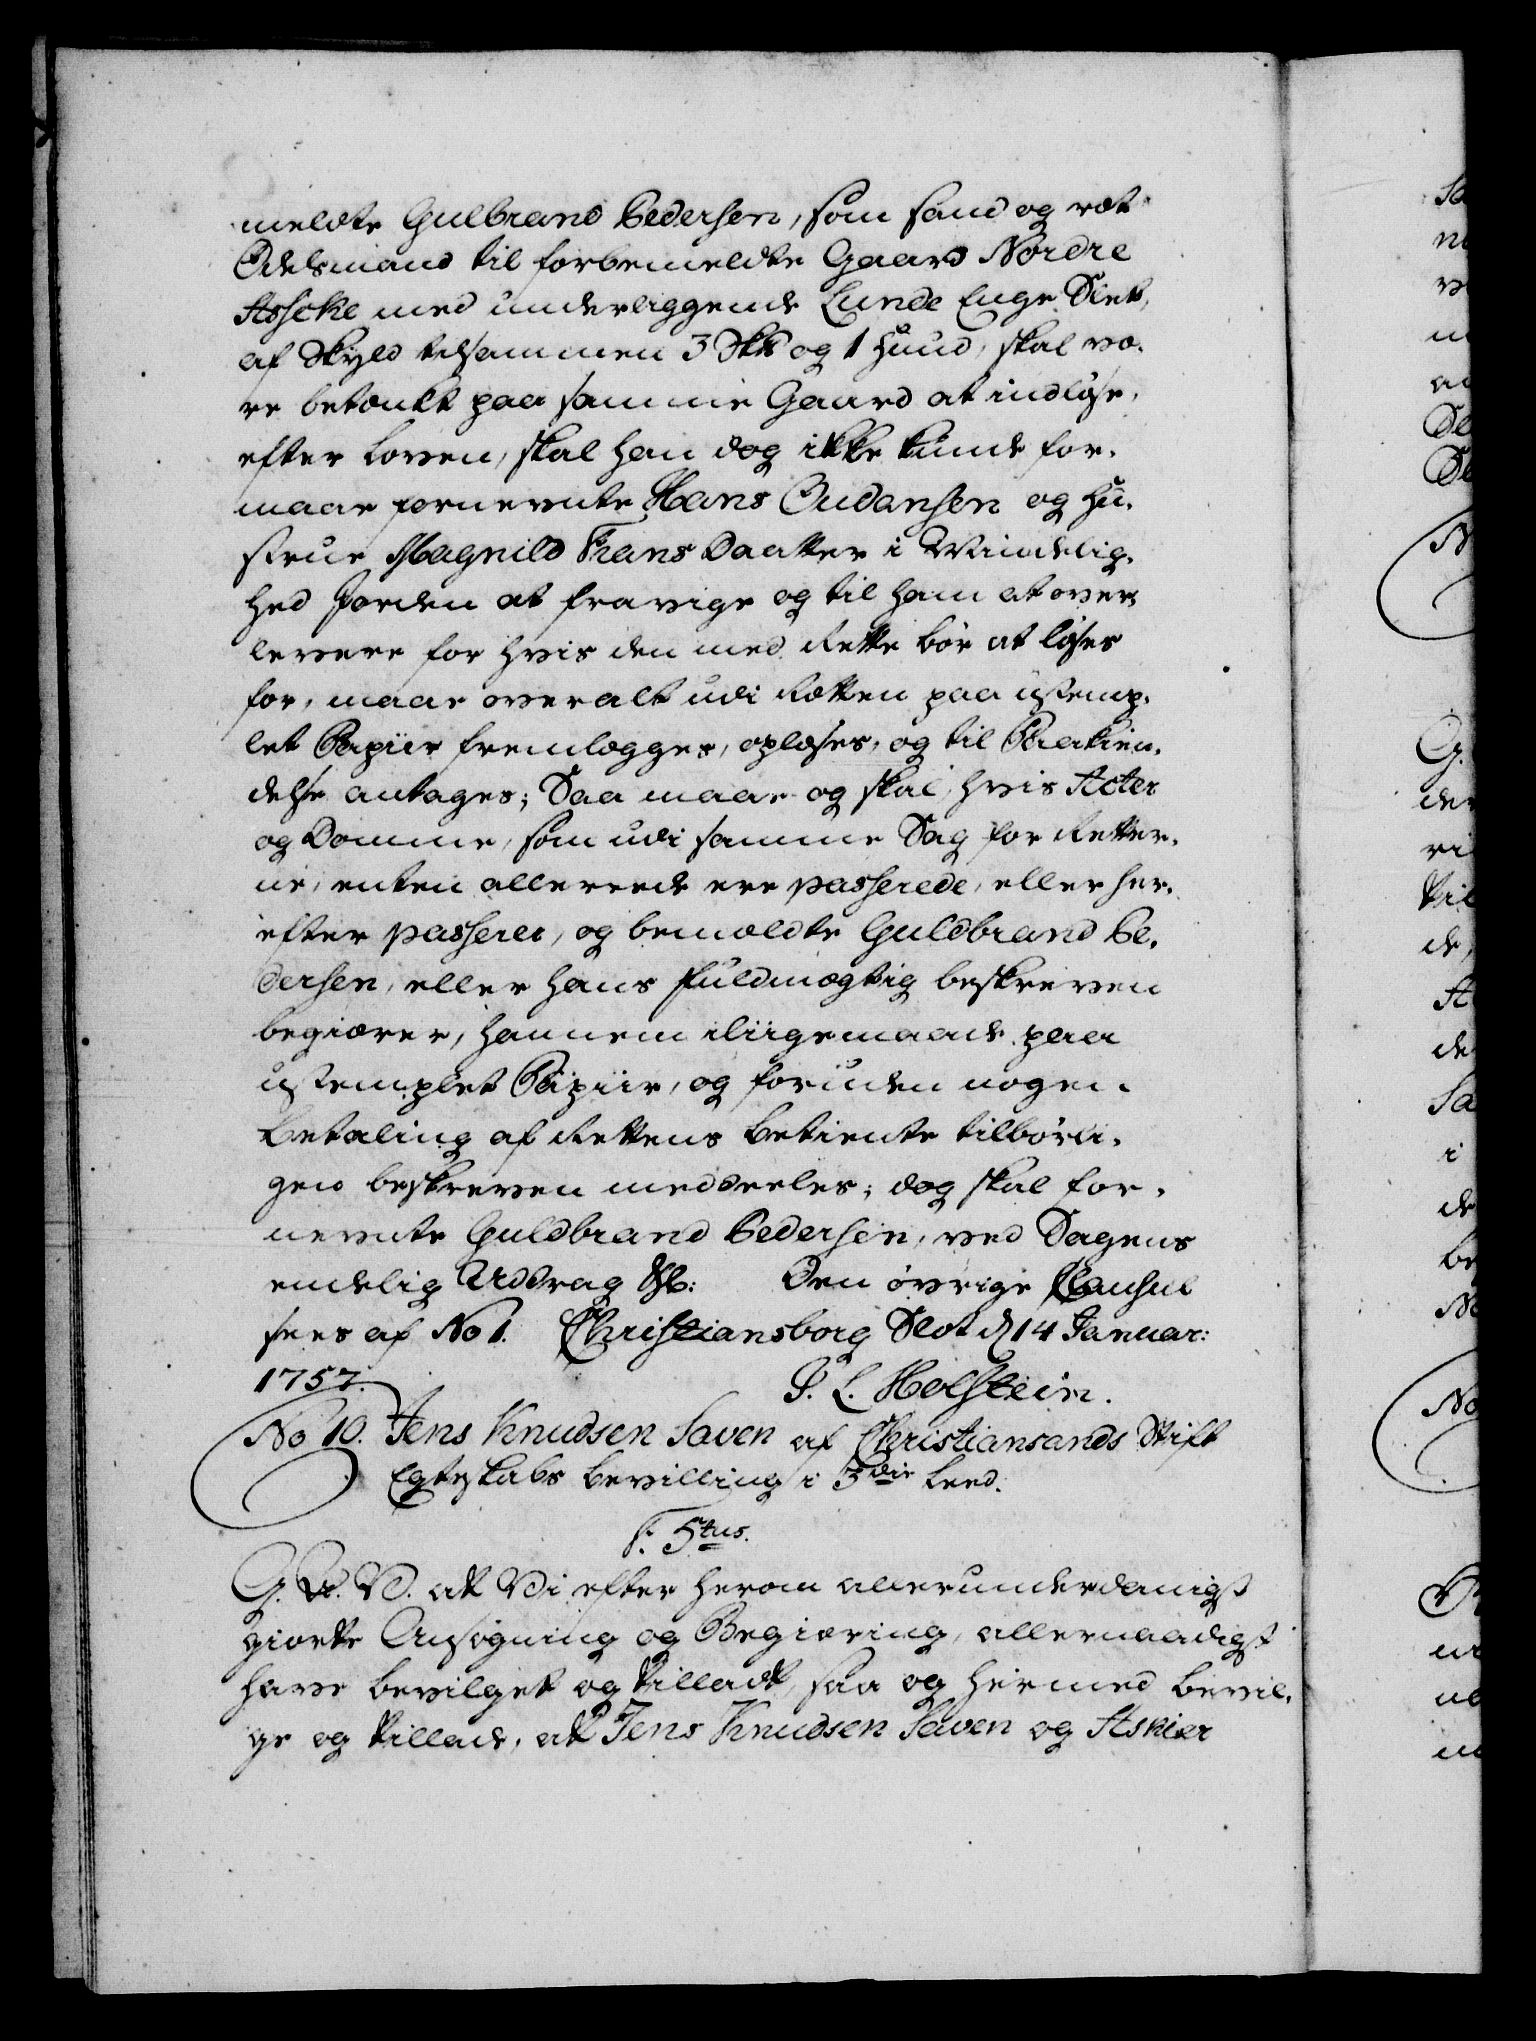 meldte Gulbrand Pedersen, som sand og ræt
Odelsmand til forbemeldte Gaard Nordre
Asscke med underliggende Lunde Enge Slet,
af Skyld tilsammen 3 Skt og 1 Huud, skal væ-
re betænkt paa samme Gaard at indløse,
efter Loven, skal han dog ikke kunde for-
maae fornevnte Hans Oudansen og Hu-
strue Magnild Frans Daatter i Mindelig-
hed Jorden at fravige og til ham at over
levere for hvis den med Rette bør at løses
for, maae overalt udi Rætten paa ustemp-
let Papiir fremlægges, oplæses, og til Paakien-
delse antages; Saa maae og skal, hvis Acter
og Domme, som udi samme Sag for Retter-
ne, enten allereede ere passerede, eller her-
efter passerer, og bemældte Guldbrand Pe-
dersen, eller hans Fuldmægtig beskreven
begiærer, hannem iligemaade paa
ustemplet Papiir, og foruden nogen
Betaling af Rettens Betiente tilbørli-
gen beskreven meddeeles; dog skal for-
nevnte Guldbrand Pedersen, ved Sagens
endelig Uddrag &c: Den øvrige Clausul
sees af No 1. Christiansborg Slot d 14 Januar:
1757.
J. L. Holstein.
No 10. Jens Knudsen Saven af Christiansands Stift
Egteskabs Bevilling i 3die Leed.
F. 5tus.
G. V. at Vi efter herom allerunderdanigst
giorte Ansøgning og Begiæring, allernaadigst
have bevilget og tilladt, saa og hermed bevil-
ge og tillade, at Jens Knudsen Saven og Askier